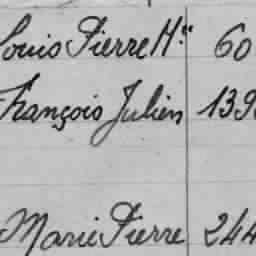 Louis Pierre Hri 60
François Julien 139
Marie Pierre 244